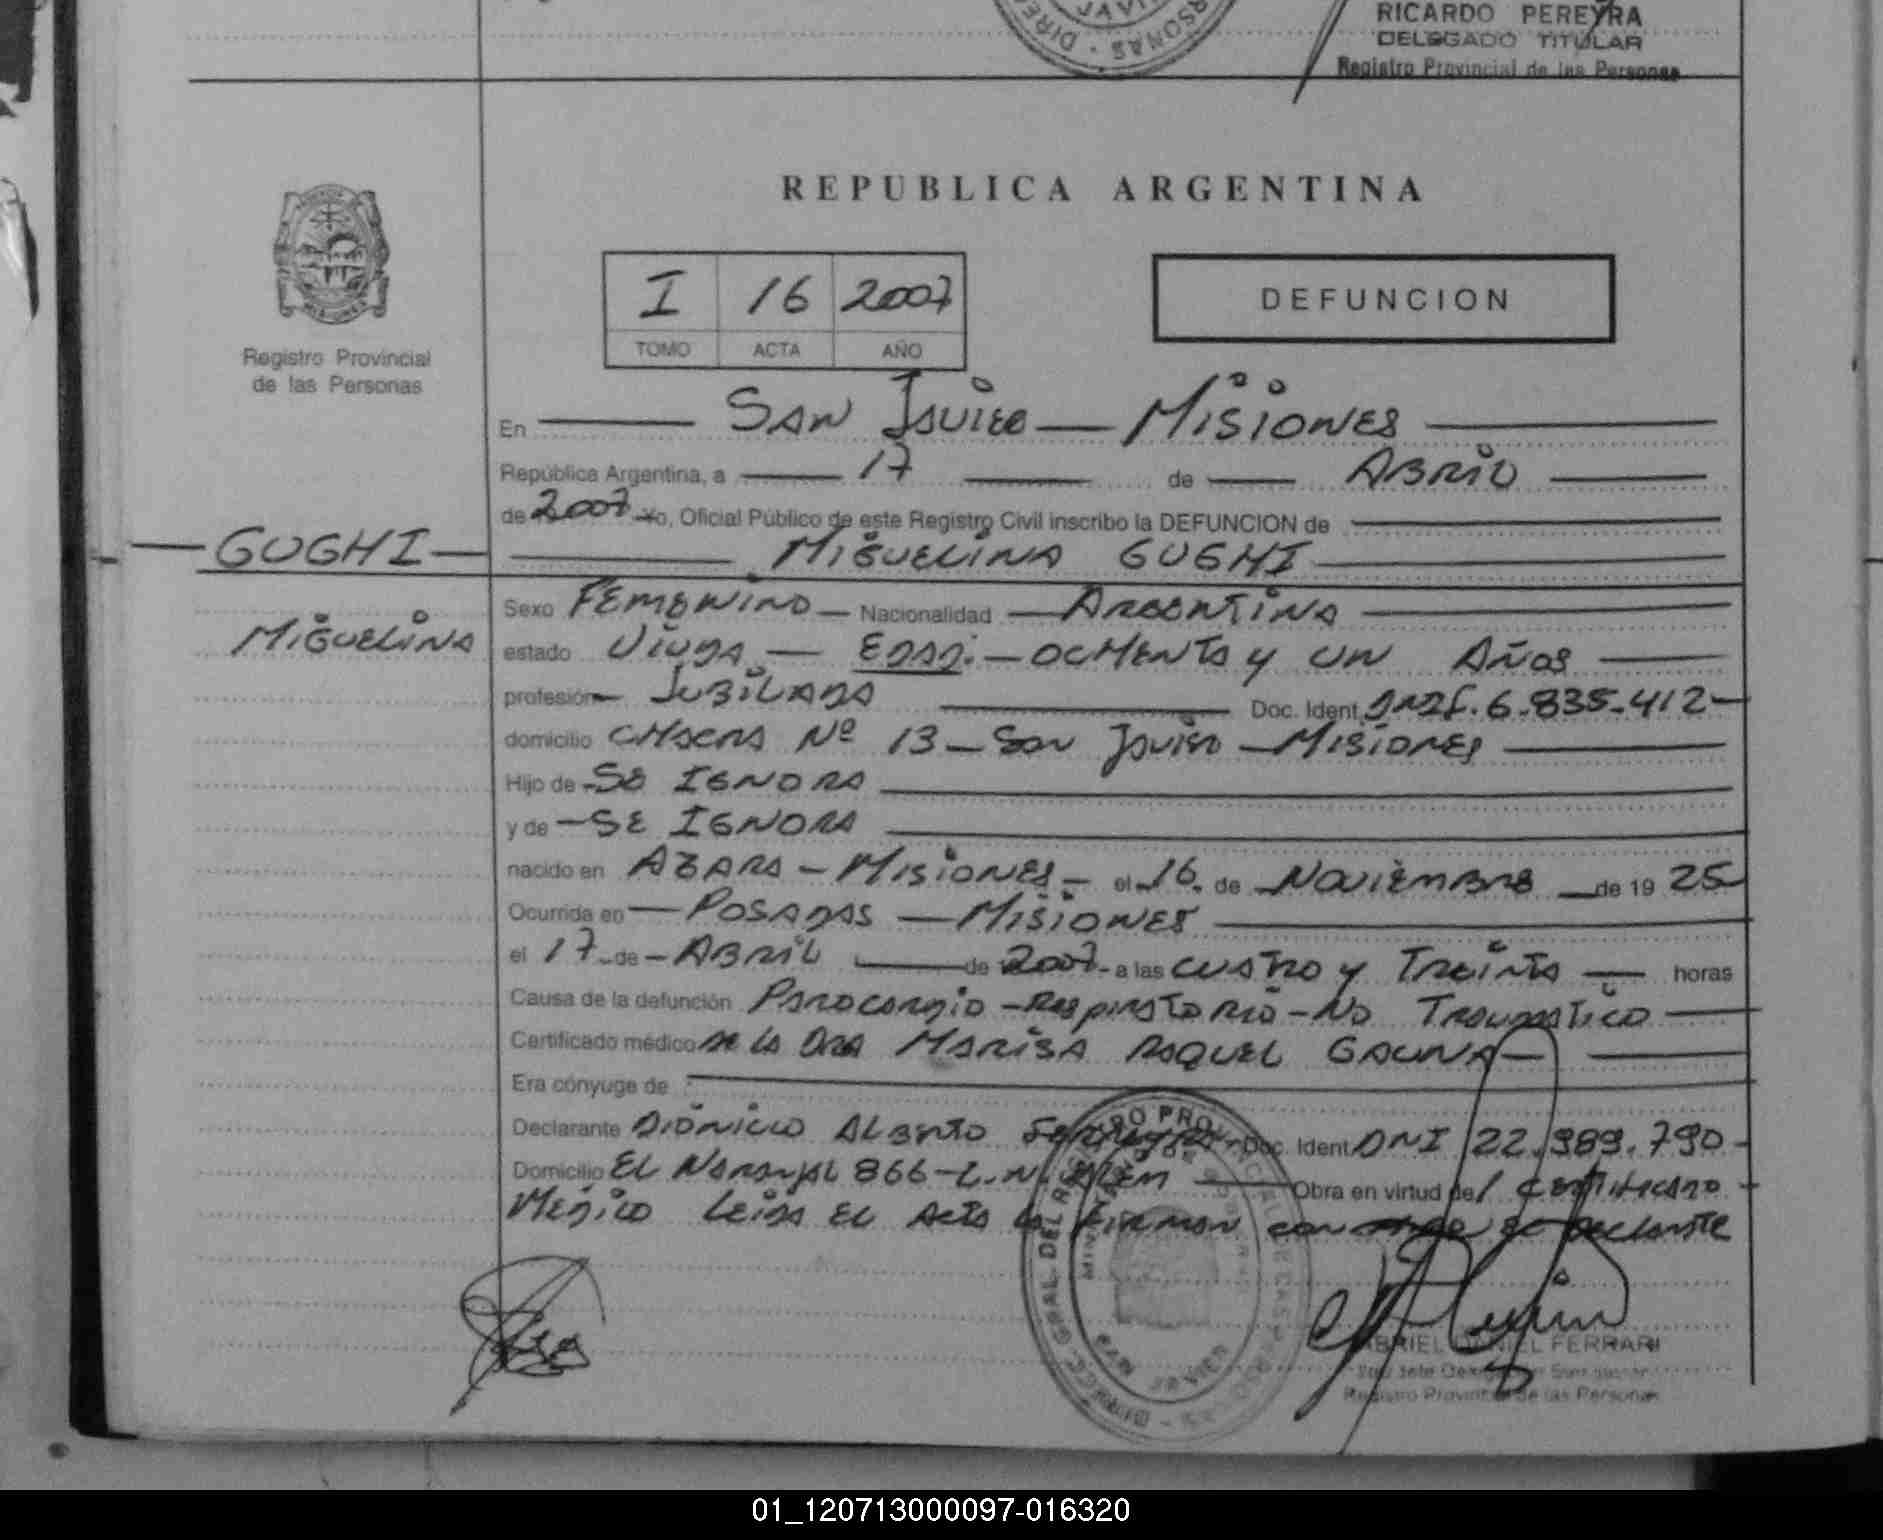 RICARDO PEREYRA
DELEGADO TITULAR
Registro Provincial de las Personas
REPUBLICA ARGENTINA
I 16 2007
TOMO ACTA AÑO
DEFUNCION
Registro Provincial
de las Personas
En San Javier Misiones
República Argentina, a 17 de Abril
de 2007 Yo, Oficial Público de este Registro Civil inscribo la DEFUNCION de
GUGHI
Miguelina GUGHI
Miguelina
Sexo Femenino Nacionalidad Argentina
estado Viuda - Edad: - Ochenta y un Años
profesión Jubilada Doc. Ident. 6.835.412
domicilio Chacra Nº 13 - San Javier - Misiones
Hijo de - Se Ignora
y de - Se Ignora
nacido en Azara - Misiones - el 16 de Noviembre de 19 25
Ocurrida en - Posadas - Misiones
el 17 de - Abril de 2007 - a las cuatro y Treinta horas
Causa de la defunción Parocardio - Respiratorio - No Traumatico
Certificado médico de la Dra Marisa Raquel Gauna
Era cónyuge de
Declarante Dionicio Alberto Ferreyra - Doc. Ident. DNI 22.989.790 -
Domicilio El Naranjal 866 - L.N. Alem Obra en virtud del Certificado
Medico Leida el Acta la firman con el declarante
GABRIEL DANIEL FERRARI
Registro Provincial de las Personas
01_120713000097-016320